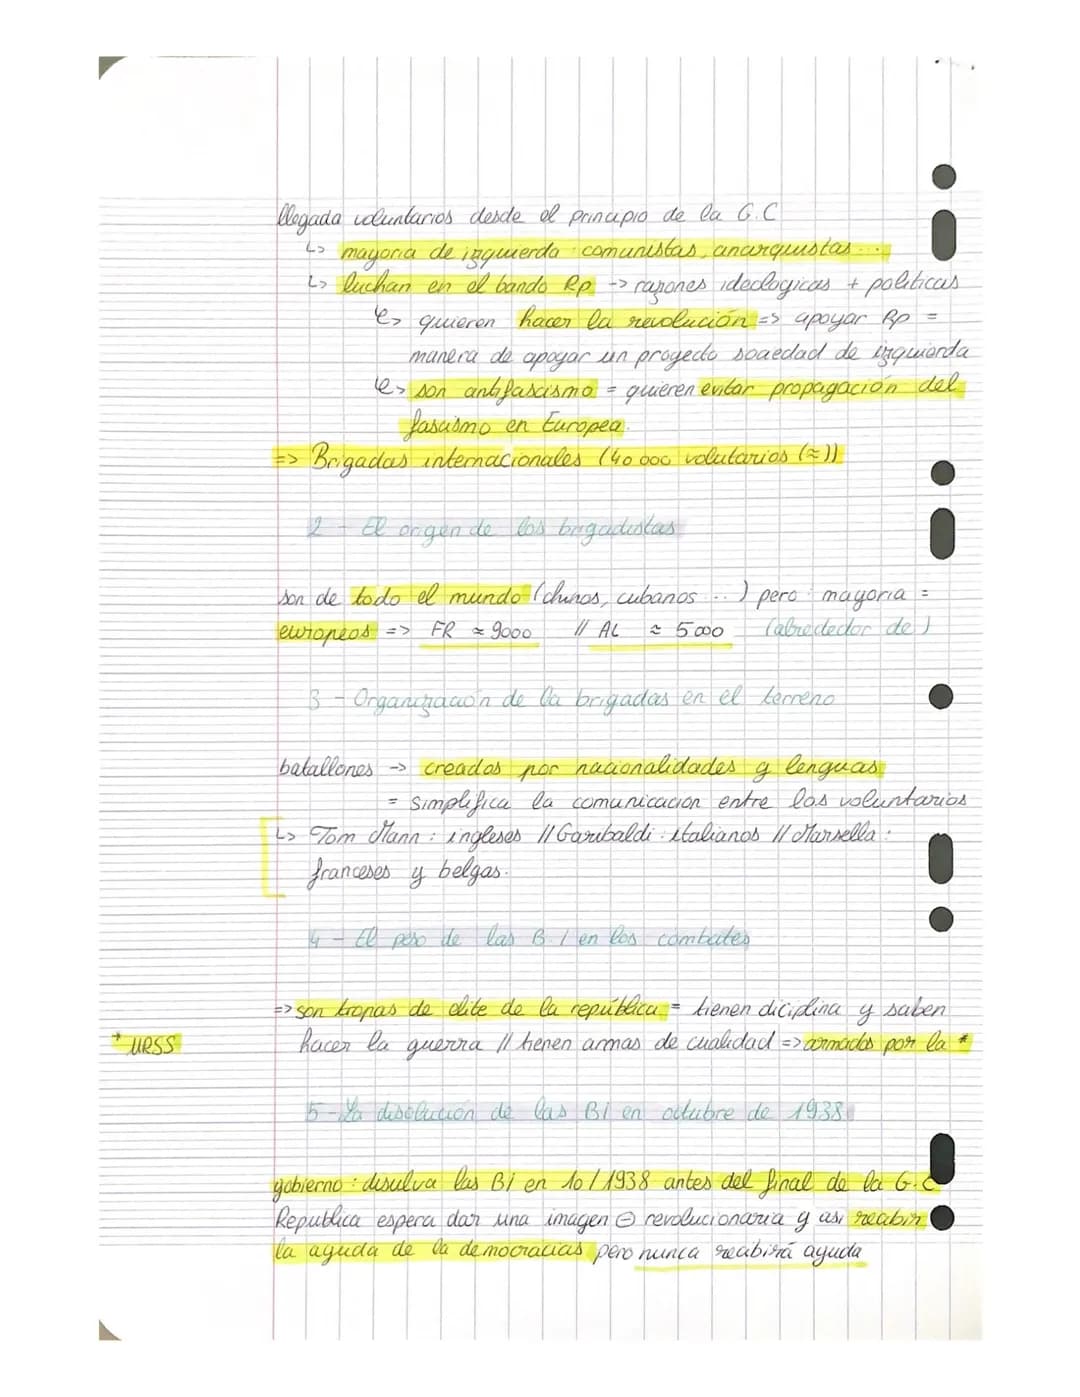 llegada voluntarios desde el principio de la G.C
↳ mayoria de izquierda : comunistas, anarquistas ...
↳ luchan en el bando Rp -> razones ideologicas + politicas
↳ quieren hacer la revolución => apoyar Rp =
manera de apoyar un proyecto sociedad de izquierda
↳ son antifascismo = quieren evitar propagación del
fascismo en Europea.
=> Brigadas internacionales (40 000 volutarios (≈))
2 - El origen de los brigadistas
son de todo el mundo (chinos, cubanos ...) pero mayoria =
europeos => FR ≈ 9000 // AL ≈ 5000 (alrededor de)
3 - Organización de la brigadas en el terreno
batallones -> creados por nacionalidades y lenguas
= simplifica la comunicacion entre los voluntarios
↳ Tom Mann : ingleses // Garibaldi : italianos // Marsella :
franceses y belgas.
4 - El peso de las B.I en los combates
=> son tropas de elite de la república = tienen diciplina y saben
hacer la guerra // tienen armas de cualidad => armados por la *
* URSS
5 - La disolución de las BI en octubre de 1938
gobierno : disulva las BI en 10/1938 antes del final de la G.C
Republica espera dar una imagen ⊖ revolucionaria y asi recibir
la ayuda de la democracias pero nunca recibirá ayuda